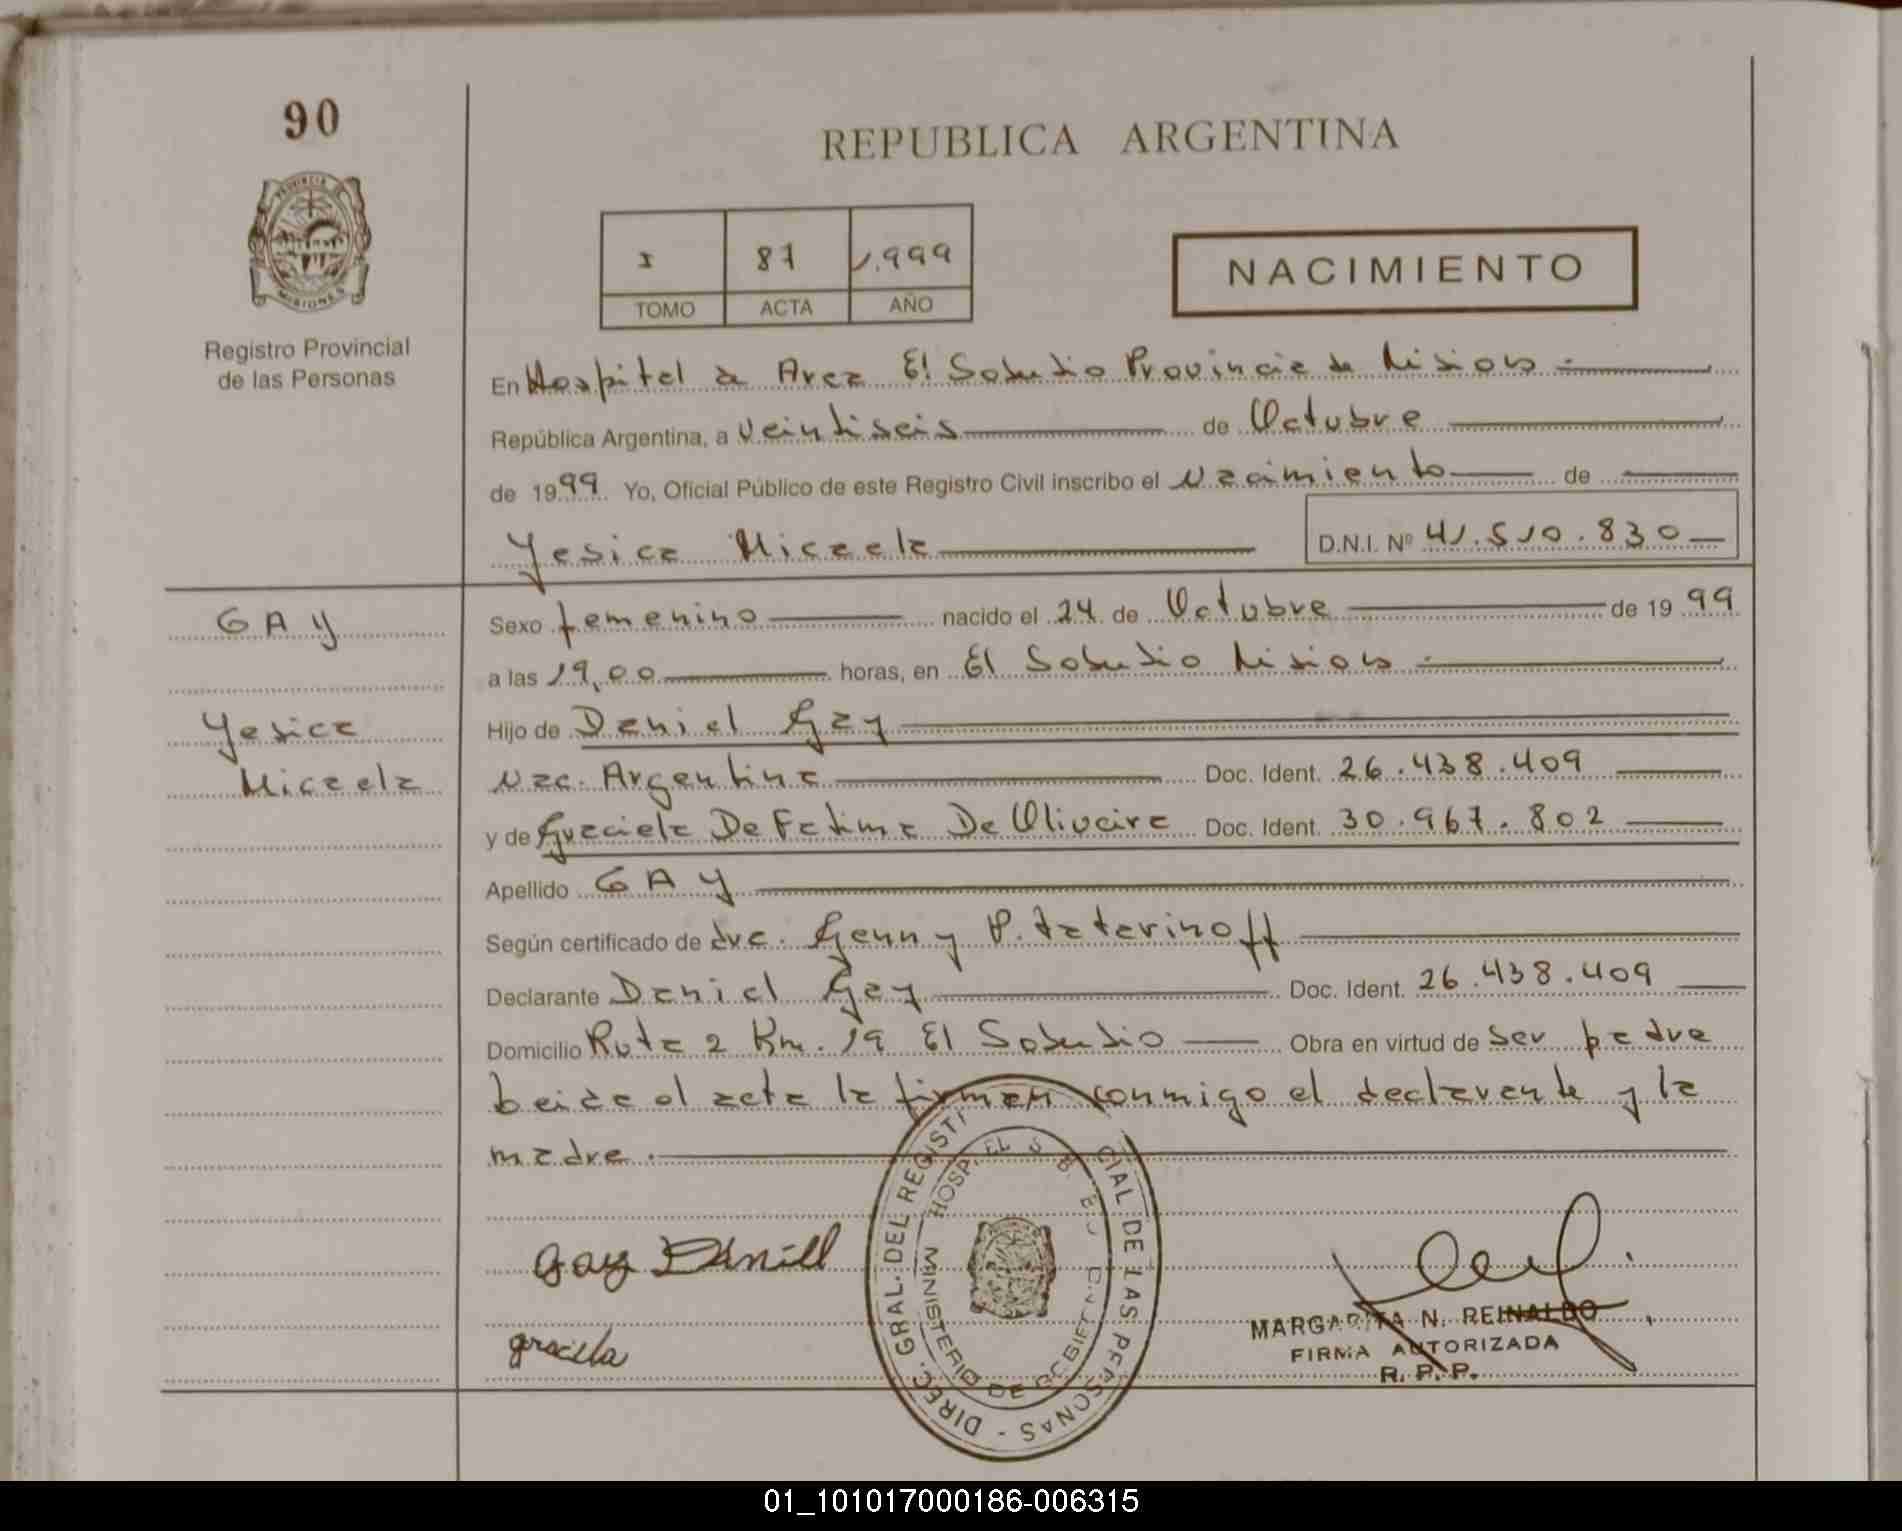 90
REPUBLICA ARGENTINA
PROVINCIA DE
MISIONES
Registro Provincial
de las Personas
I 87 1.999
TOMO ACTA AÑO
NACIMIENTO
En Hospital de Area El Soberbio Provincia de Misiones.-
República Argentina, a veintiseis de Octubre
de 1999 Yo, Oficial Público de este Registro Civil inscribo el nacimiento de
Yesica Micaela D.N.I. Nº 41.510.830
GAY
Yesica
Micaela
Sexo femenino nacido el 24 de Octubre de 1999
a las 19,00 horas, en El Soberbio Misiones.-
Hijo de Daniel Gay
Nac. Argentina Doc. Ident. 26.438.409
y de Graciela De Fatima De Oliveira Doc. Ident. 30.967.802
Apellido GAY
Según certificado de dra. Genny P. Tatarinoff
Declarante Daniel Gay Doc. Ident. 26.438.409
Domicilio Ruta 2 Km. 19 El Soberbio Obra en virtud de ser padre
Leida el acta la firman conmigo el declarante y la
madre.
Gay Daniel
graciela
DIREC. GRAL. DEL REGIST CIAL DE LAS PERSONAS -
HOSP. EL S B B O
MINISTERIO DE GOBIERNO
MARGARITA N. REINALDO
FIRMA AUTORIZADA
R. P. P.
01_101017000186-006315